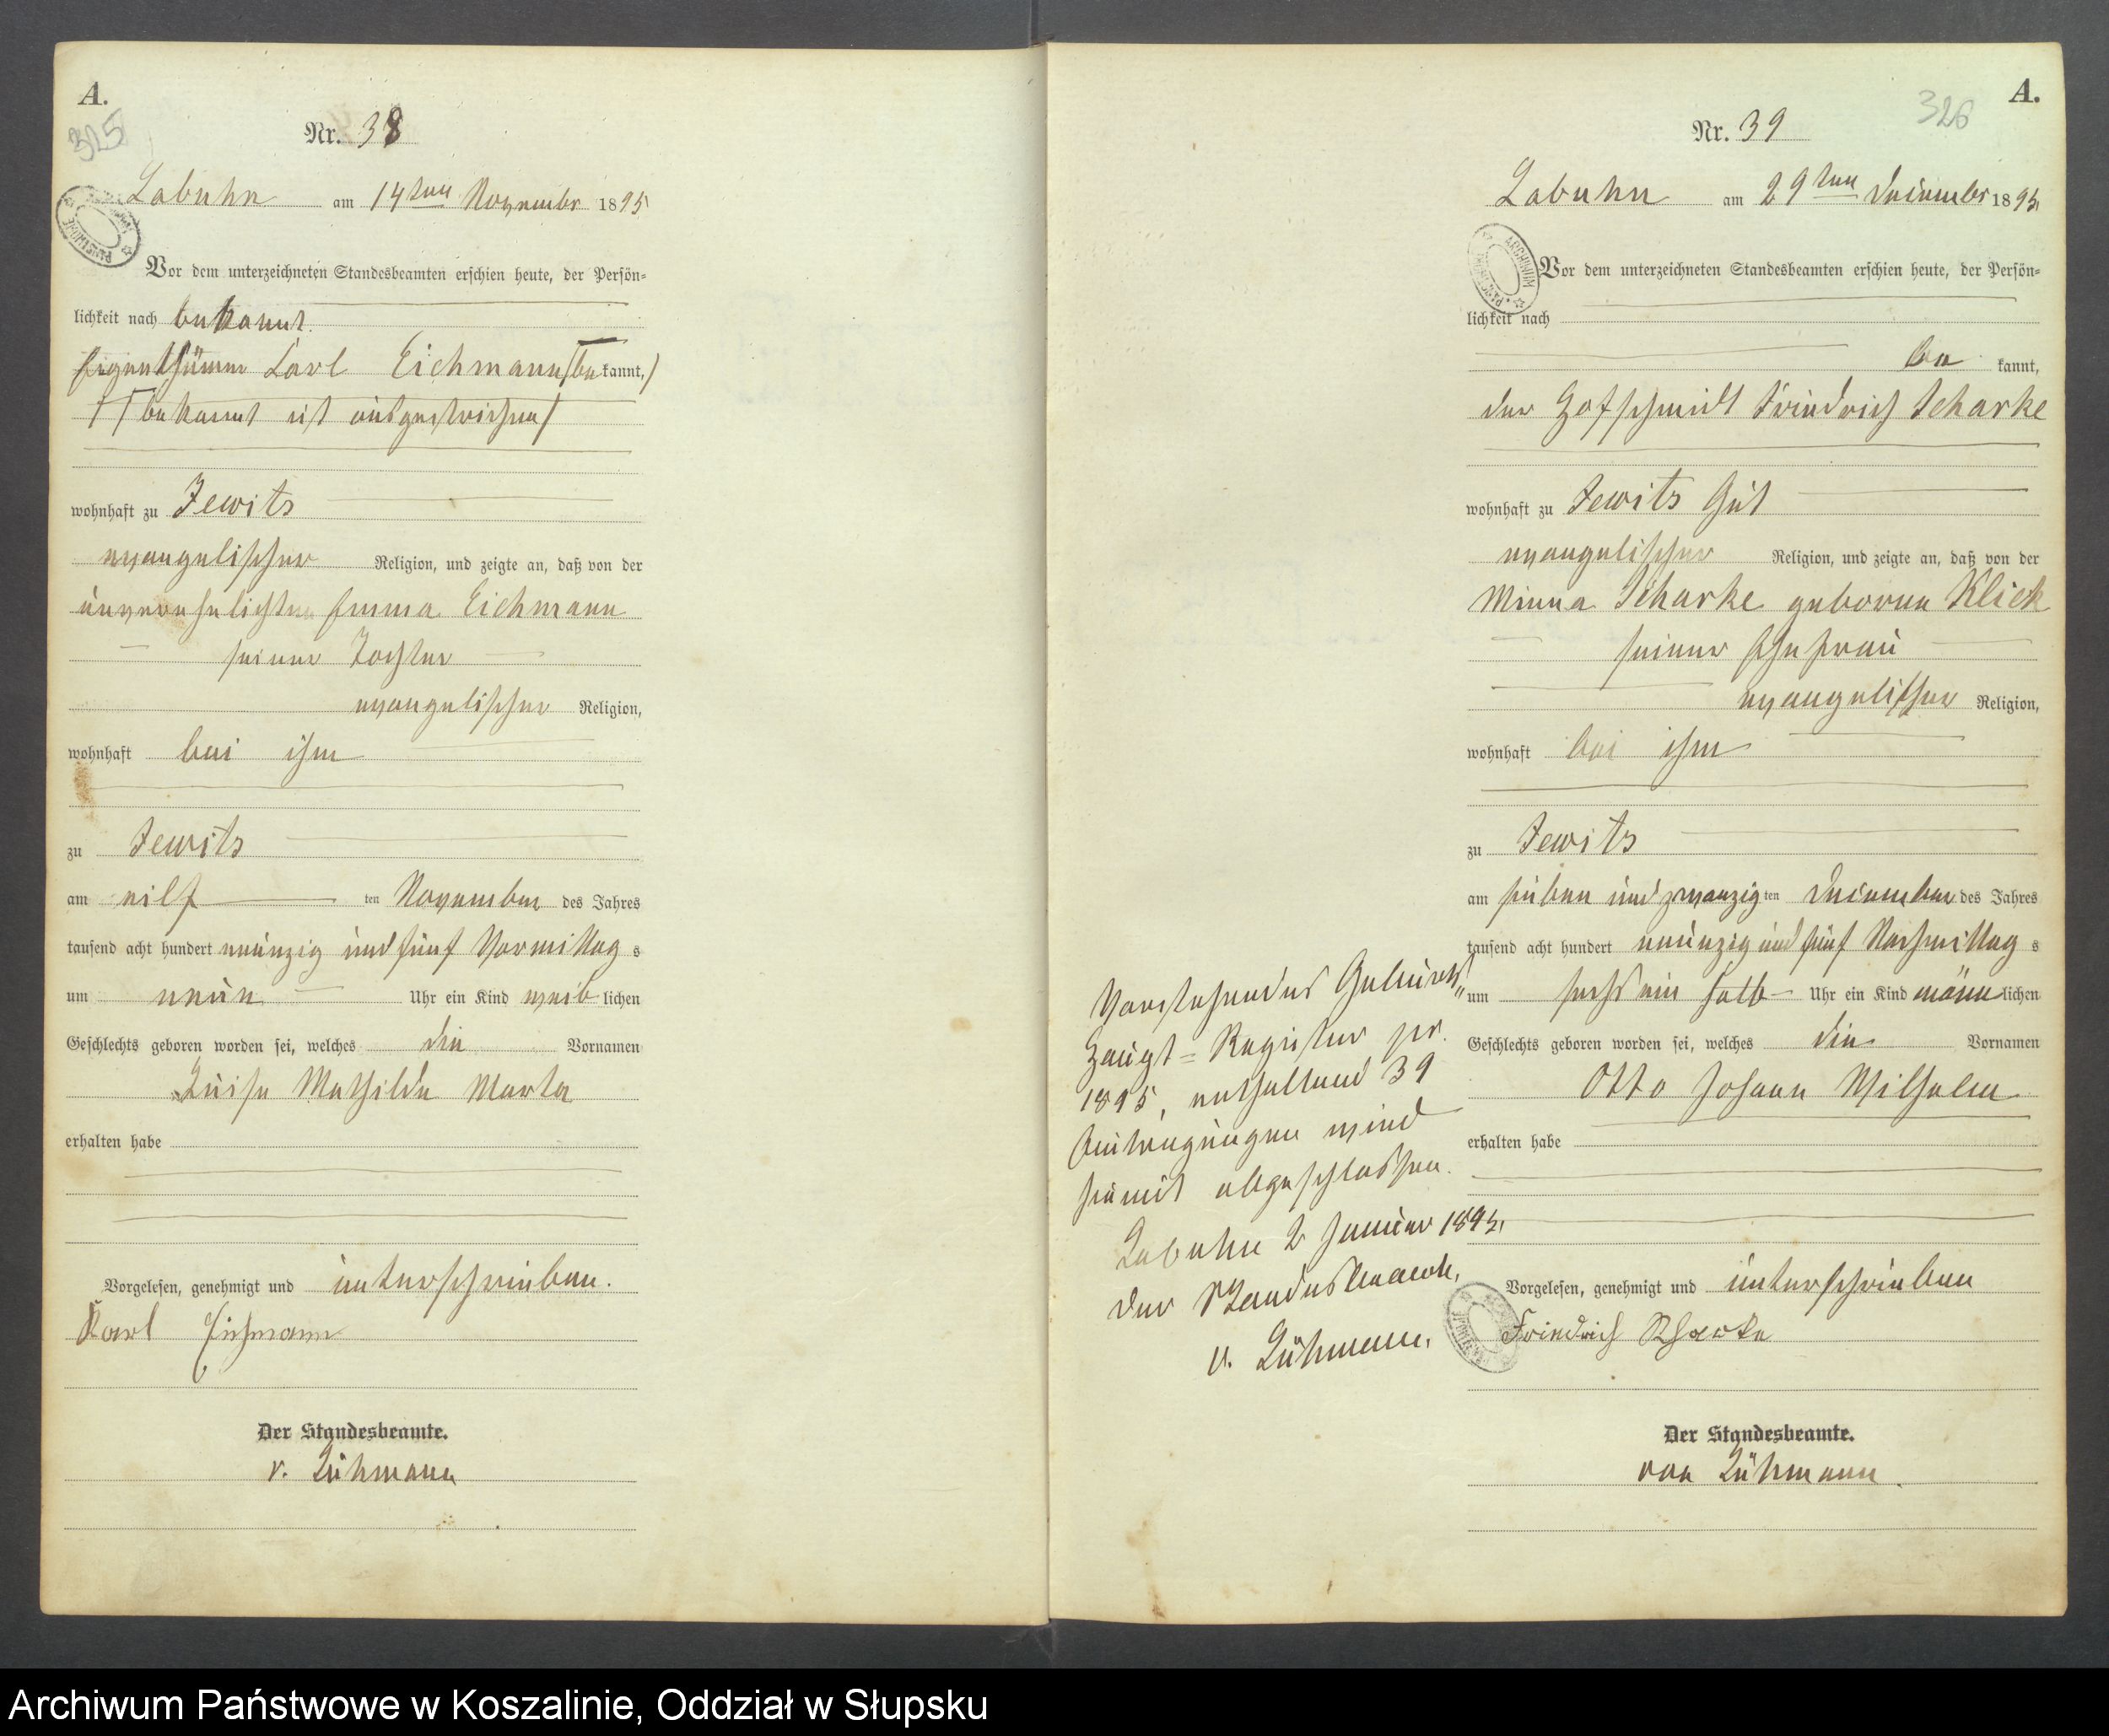 A.
325
Nr. 38
Labuhn am 14ten November 1895
Vor dem unterzeichneten Standesbeamten erschien heute, der Persön-
lichkeit nach bekannt.
Eigenthümer Carl Eichmann /be kannt,/
/ / bekannt ist ausgestrichen /
wohnhaft zu Jewits
evangelischer Religion, und zeigte an, daß von der
unverehelichten Emma Eichmann
seiner Tochter
evangelischer Religion,
wohnhaft bei ihm
zu Jewits
am eilf ten November des Jahres
tausend acht hundert neunzig und fünf Vormittag s
um neun Uhr ein Kind weib lichen
Geschlechts geboren worden sei, welches die Vornamen
Luise Mathilde Marta
erhalten habe
Vorgelesen, genehmigt und unterschrieben.
Karl Eichmann
Der Standesbeamte.
v. Lühmann
A.
326
Nr. 39
Labuhn am 29ten Dezember 1895
Vor dem unterzeichneten Standesbeamten erschien heute, der Persön-
lichkeit nach
be kannt,
der Hofschmidt Friedrich Scharke
wohnhaft zu Jewits Gut
evangelischer Religion, und zeigte an, daß von der
Minna Scharke geborene Klick
seiner Ehefrau
evangelischer Religion,
wohnhaft bei ihm
zu Jewits
am sieben und zwanzig ten Dezember des Jahres
tausend acht hundert neunzig und fünf Nachmittag s
um sechs ein halb Uhr ein Kind männ lichen
Geschlechts geboren worden sei, welches die Vornamen
Otto Johann Wilhelm
erhalten habe
Vorgelesen, genehmigt und unterschrieben
Friedrich Scharke
Der Standesbeamte.
von Lühmann.
Vorstehendes Geburts
Haupt=Register pr.
1895, enthaltend 39
Eintragungen wird
hiermit abgeschlossen.
Labuhn 2 Januar 1895.
Der Standesbeamte,
v. Lühmann.
Archiwum Państwowe w Koszalinie, Oddział w Słupsku